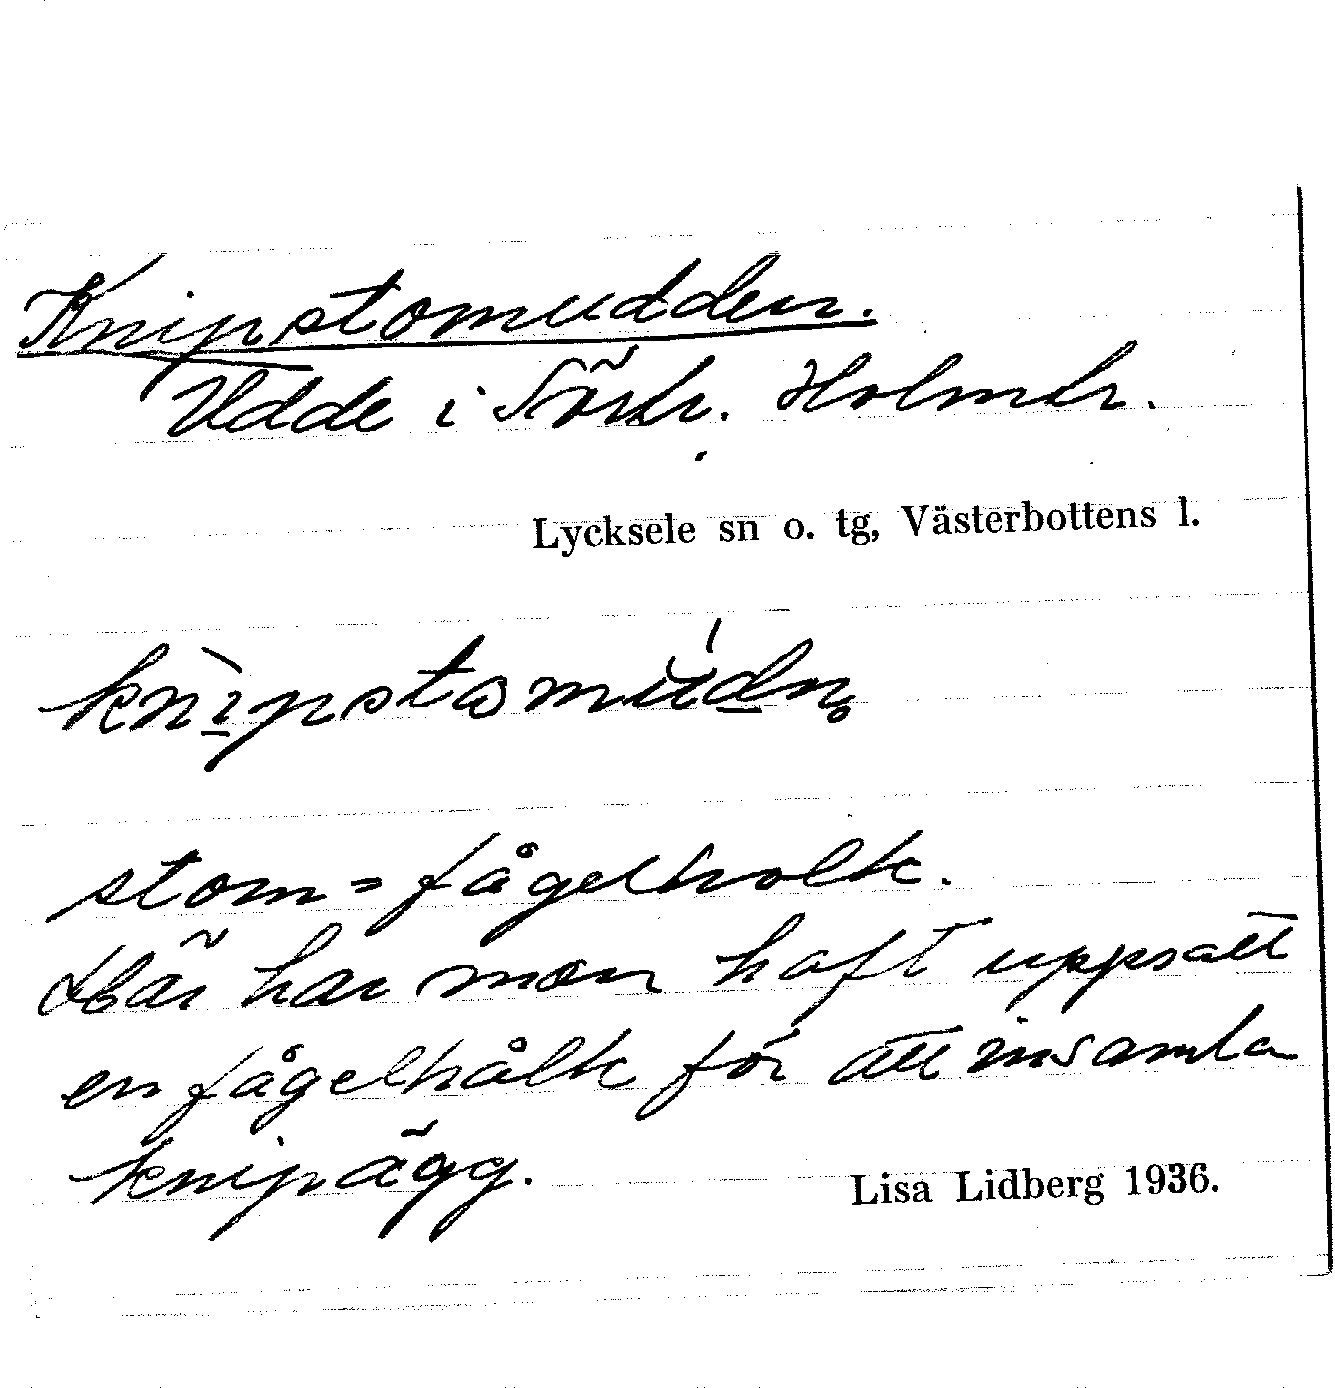 Knipstomudden.
Udde i Sörtr. Holmtr.
Lycksele sn o. tg, Västerbottens l.
stom = fågelholk.
Här har man haft uppsatt
en fågelhålk för att insamla
knipägg.
Lisa Lidberg 1936.